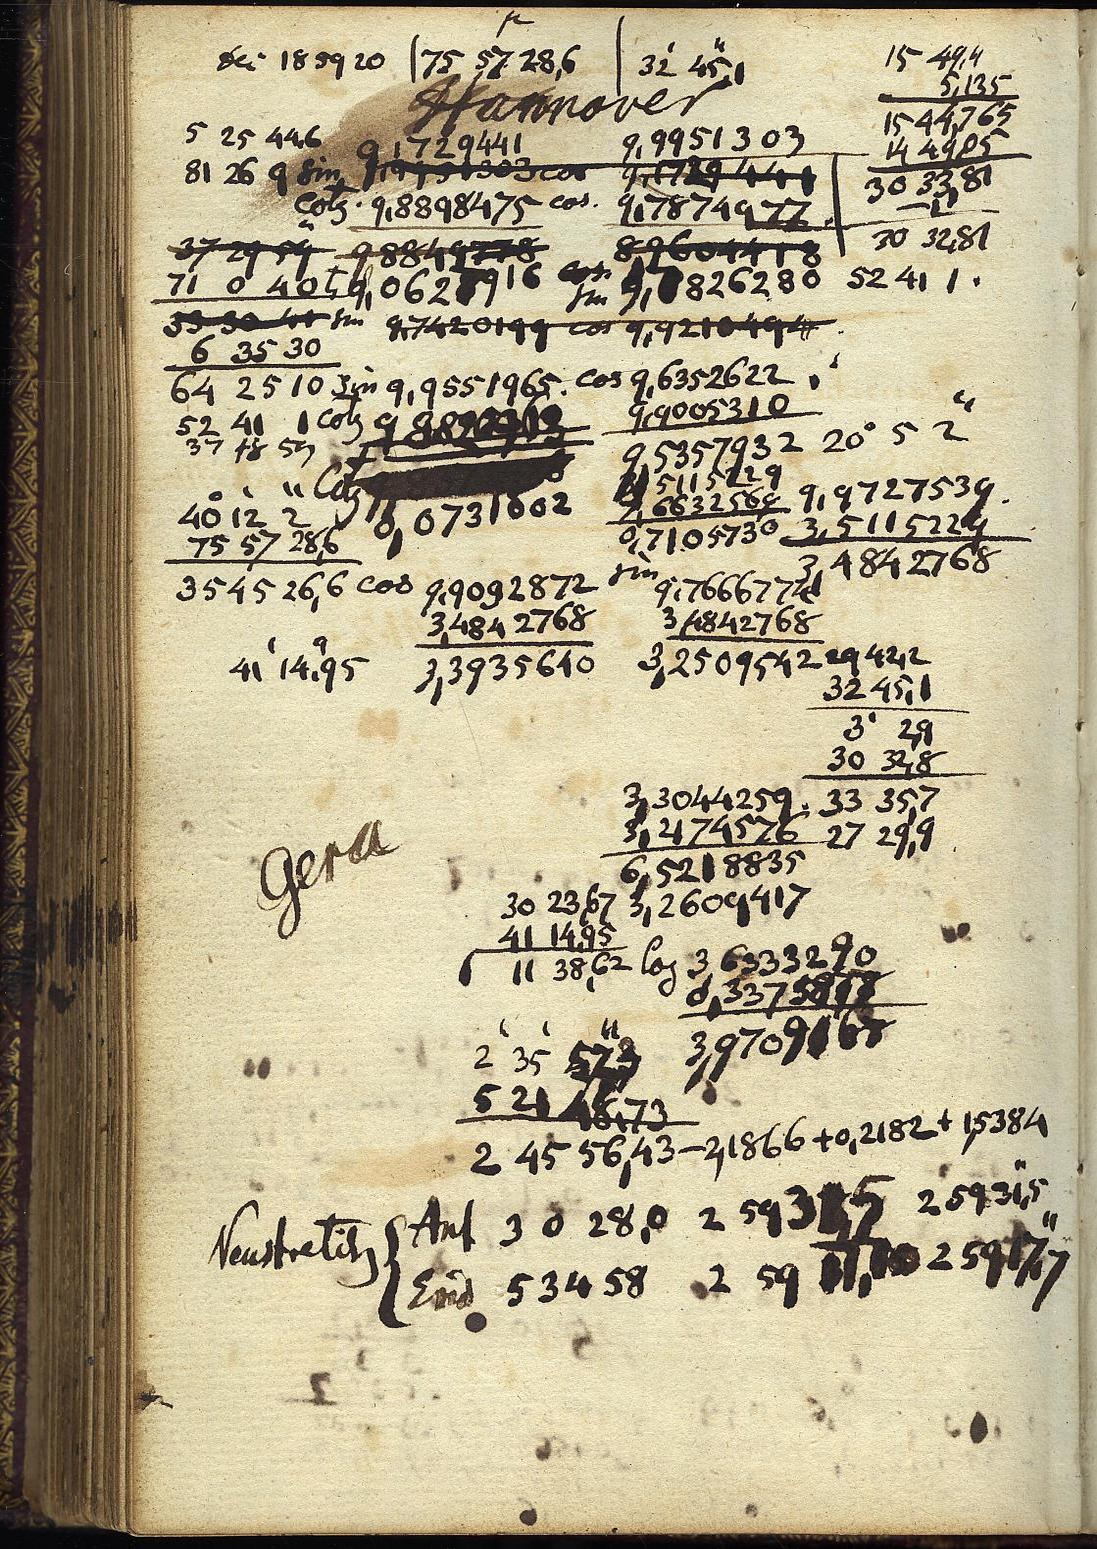 18 59 20 | 75 57 28,6 | 32' 45",1 15 49,4
5,135
Hannover 15 44,765
5 25 44,6 9,1729441 9,9951303 14 49,05
81 26 9 sin 9,9951303 cos 9,1729441 30 33,81
Cotg. 9,8898475 cos. 9,7874977 -1
37 29 59 9,8849778 8,9604418 30 32,81
71 0 40 9,0627916 cos sin 9,7826280 52 41 1.
33 30 41 sin 9,7420199 cos 9,9210494
6 35 30
64 25 10 sin 9,9551965. cos 9,6352622
52 41 1 Cotg 9,9005310
37 18 59 9,5357932 20° 5' 2"
Cotg 3,5115229 9,9727539.
40° 12' 2" 0,0731002 7,6632569 3,5115229
75 57 28,6 0,7105730 3,4842768
35 45 26,6 cos 9,9092872 sin 9,7666774
3,4842768 3,4842768
41' 14",95 3,3935640 3,2509542 29 42,2
32 45,1
3' 2,9
30 32,8
3,3044259. 33 35,7
3,2174576 27 29,9
Gera 6,5218835
30 23,67 3,2609417
41 14,95
11 38,62 log 3,6333290
0,3375877
2 35 57,3 3,9709167
5 21 46,73
2 45 56,43 - 2,1866 + 0,2182 + 1,5384
Neustrelitz { Anf 3 0 28,0 2 59 31,5 2 59 31",5
End 5 34 58 2 59 2 59 17",7